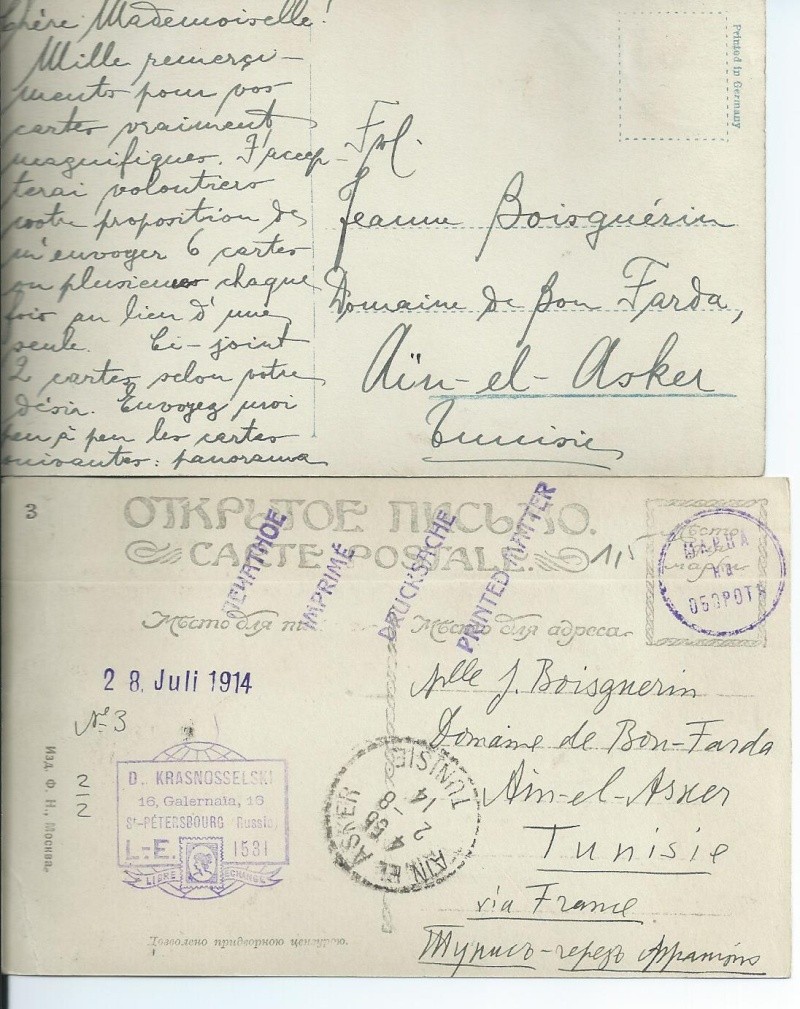 Chère Mademoiselle!
Mille remerci-
ments pour vos
cartes vraiment
magnifiques. J'accep-
terai volontiers
votre proposition de
m'envoyer 6 cartes
ou plusieurs chaque
fois au lieu d'une
seule. Ci-joint
2 cartes selon votre
désir. Envoyez moi
peu à peu les cartes
suivantes: panorama
Printed in Germany
Frl.
Jeanne Boisguérin
Domaine de Bou Farda,
Aïn-el-Asker
Tunisie
3
ОТКРЫТОЕ ПИСЬМО.
CARTE POSTALE.
ПЕЧАТНОЕ
IMPRIMÉ
DRUCKSACHE
PRINTED MATTER
1,5
Мѣсто
для
марки
МАРКА
НА
ОБОРОТѢ
Мѣсто для
Мѣсто для адреса
28. Juli 1914
№ 3
2
2
D. KRASNOSSELSKI
16, Galernaïa, 16
St-PÉTERSBOURG (Russie)
L.-E. 1531
LIBRE ECHANGE
AIN EL ASKER
4 55
2 -8
14
TUNISIE
Mlle J. Boisguerin
Domaine de Bon-Farda
Ain-el-Asker
Tunisie
via France
Тунисъ - черезъ
Изд. Ф. Н., Москва.
Дозволено придворною цензурою.